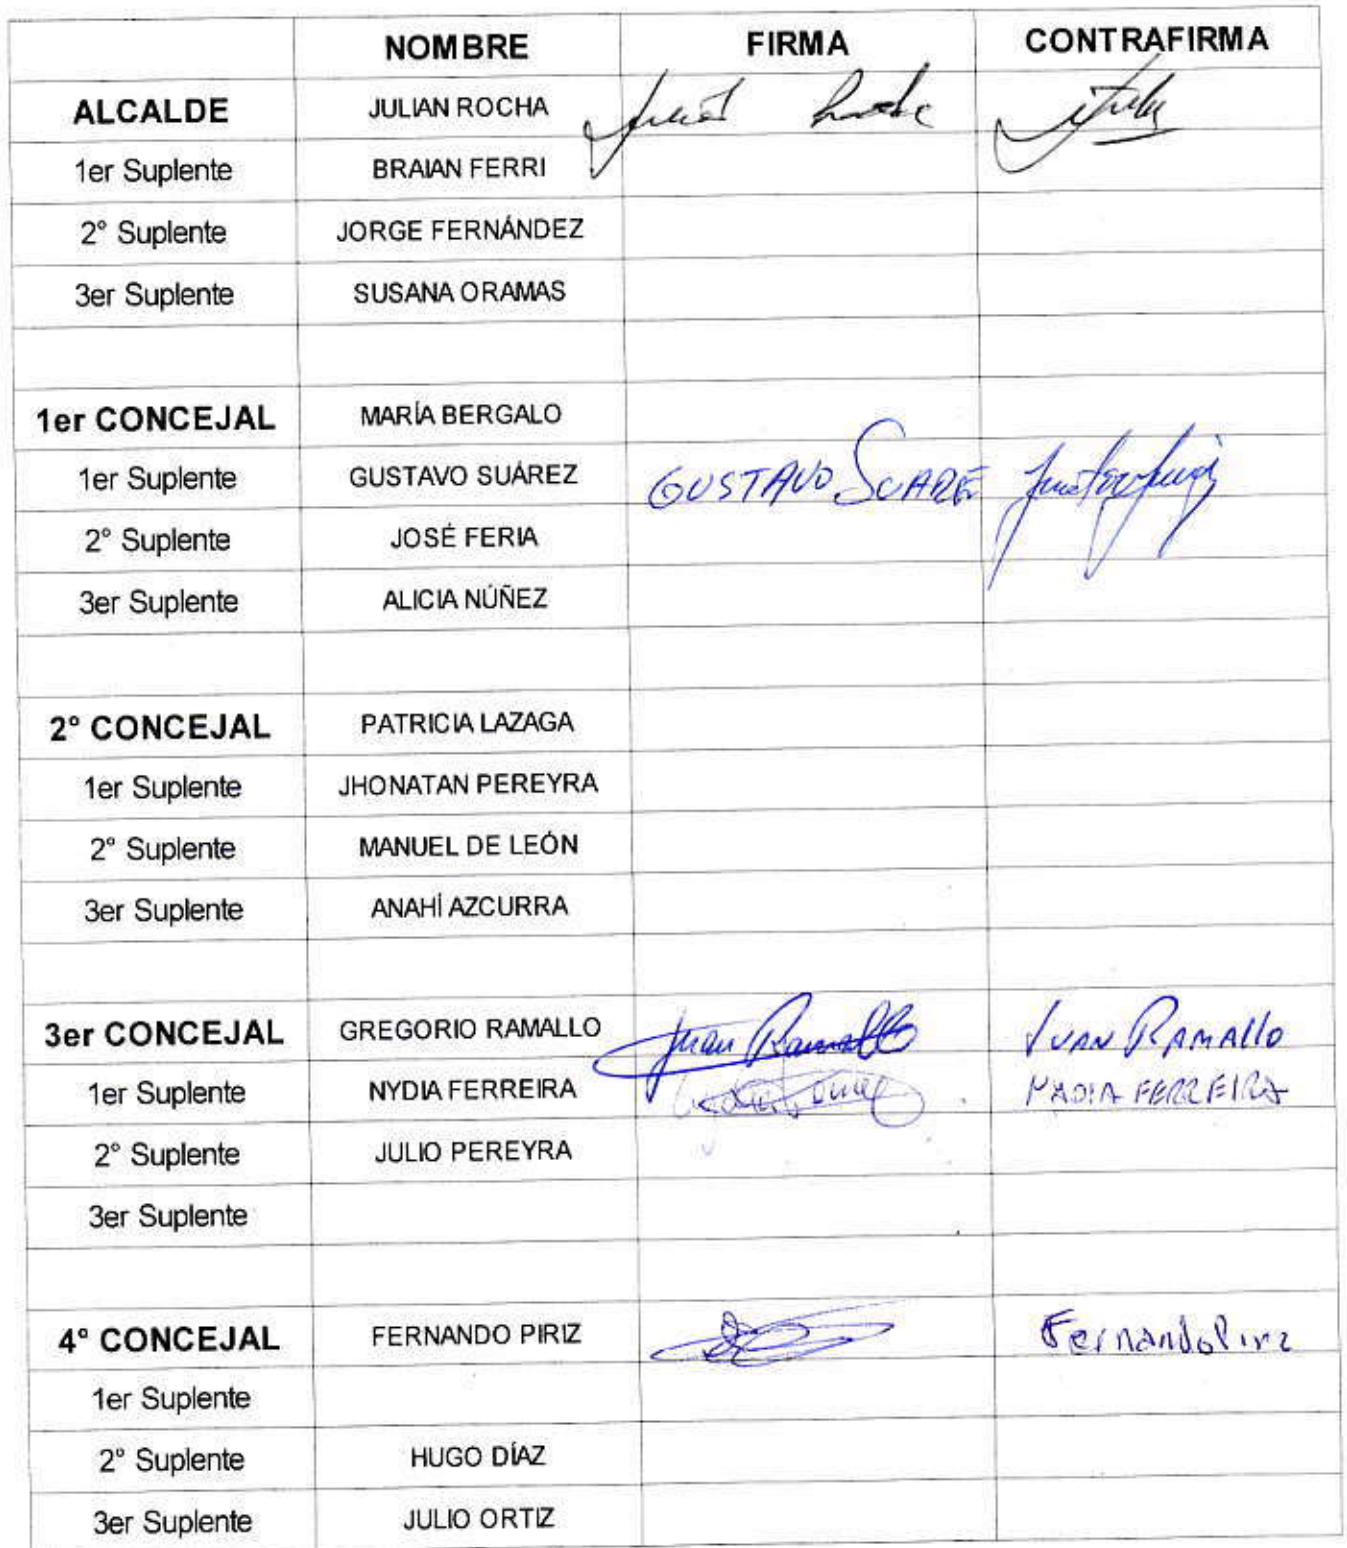 NOMBRE FIRMA CONTRAFIRMA
ALCALDE JULIAN ROCHA
1er Suplente BRAIAN FERRI
2° Suplente JORGE FERNÁNDEZ
3er Suplente SUSANA ORAMAS
1er CONCEJAL MARÍA BERGALO
1er Suplente GUSTAVO SUÁREZ GUSTAVO SUARE
2° Suplente JOSÉ FERIA
3er Suplente ALICIA NÚÑEZ
2° CONCEJAL PATRICIA LAZAGA
1er Suplente JHONATAN PEREYRA
2° Suplente MANUEL DE LEÓN
3er Suplente ANAHÍ AZCURRA
3er CONCEJAL GREGORIO RAMALLO Juan Ramallo JUAN RAMALLO
1er Suplente NYDIA FERREIRA FERREIRA
2° Suplente JULIO PEREYRA
3er Suplente
4° CONCEJAL FERNANDO PIRIZ Fernando Piriz
1er Suplente
2° Suplente HUGO DÍAZ
3er Suplente JULIO ORTIZ